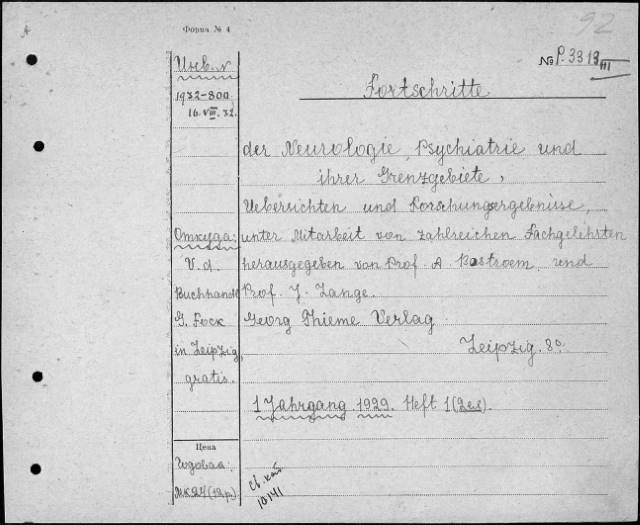 92
Форма № 4
№ P. 3313 III
Инв. №
1932-800
16.VIII.32.
Fortschritte
der Neurologie, Psychiatrie und
ihrer Grenzgebiete,
Uebersichten und Forschungsergebnisse,
unter Mitarbeit von zahlreichen Fachgelehrten
herausgegeben von Prof. A. Bostroem und
Prof. J. Lange.
Georg Thieme Verlag
Leipzig. 8°.
1 Jahrgang 1929. Heft 1
Откуда:
V. d.
Buchhandl
G. Fock
in Leipzig,
gratis.
Цена
Годовая: